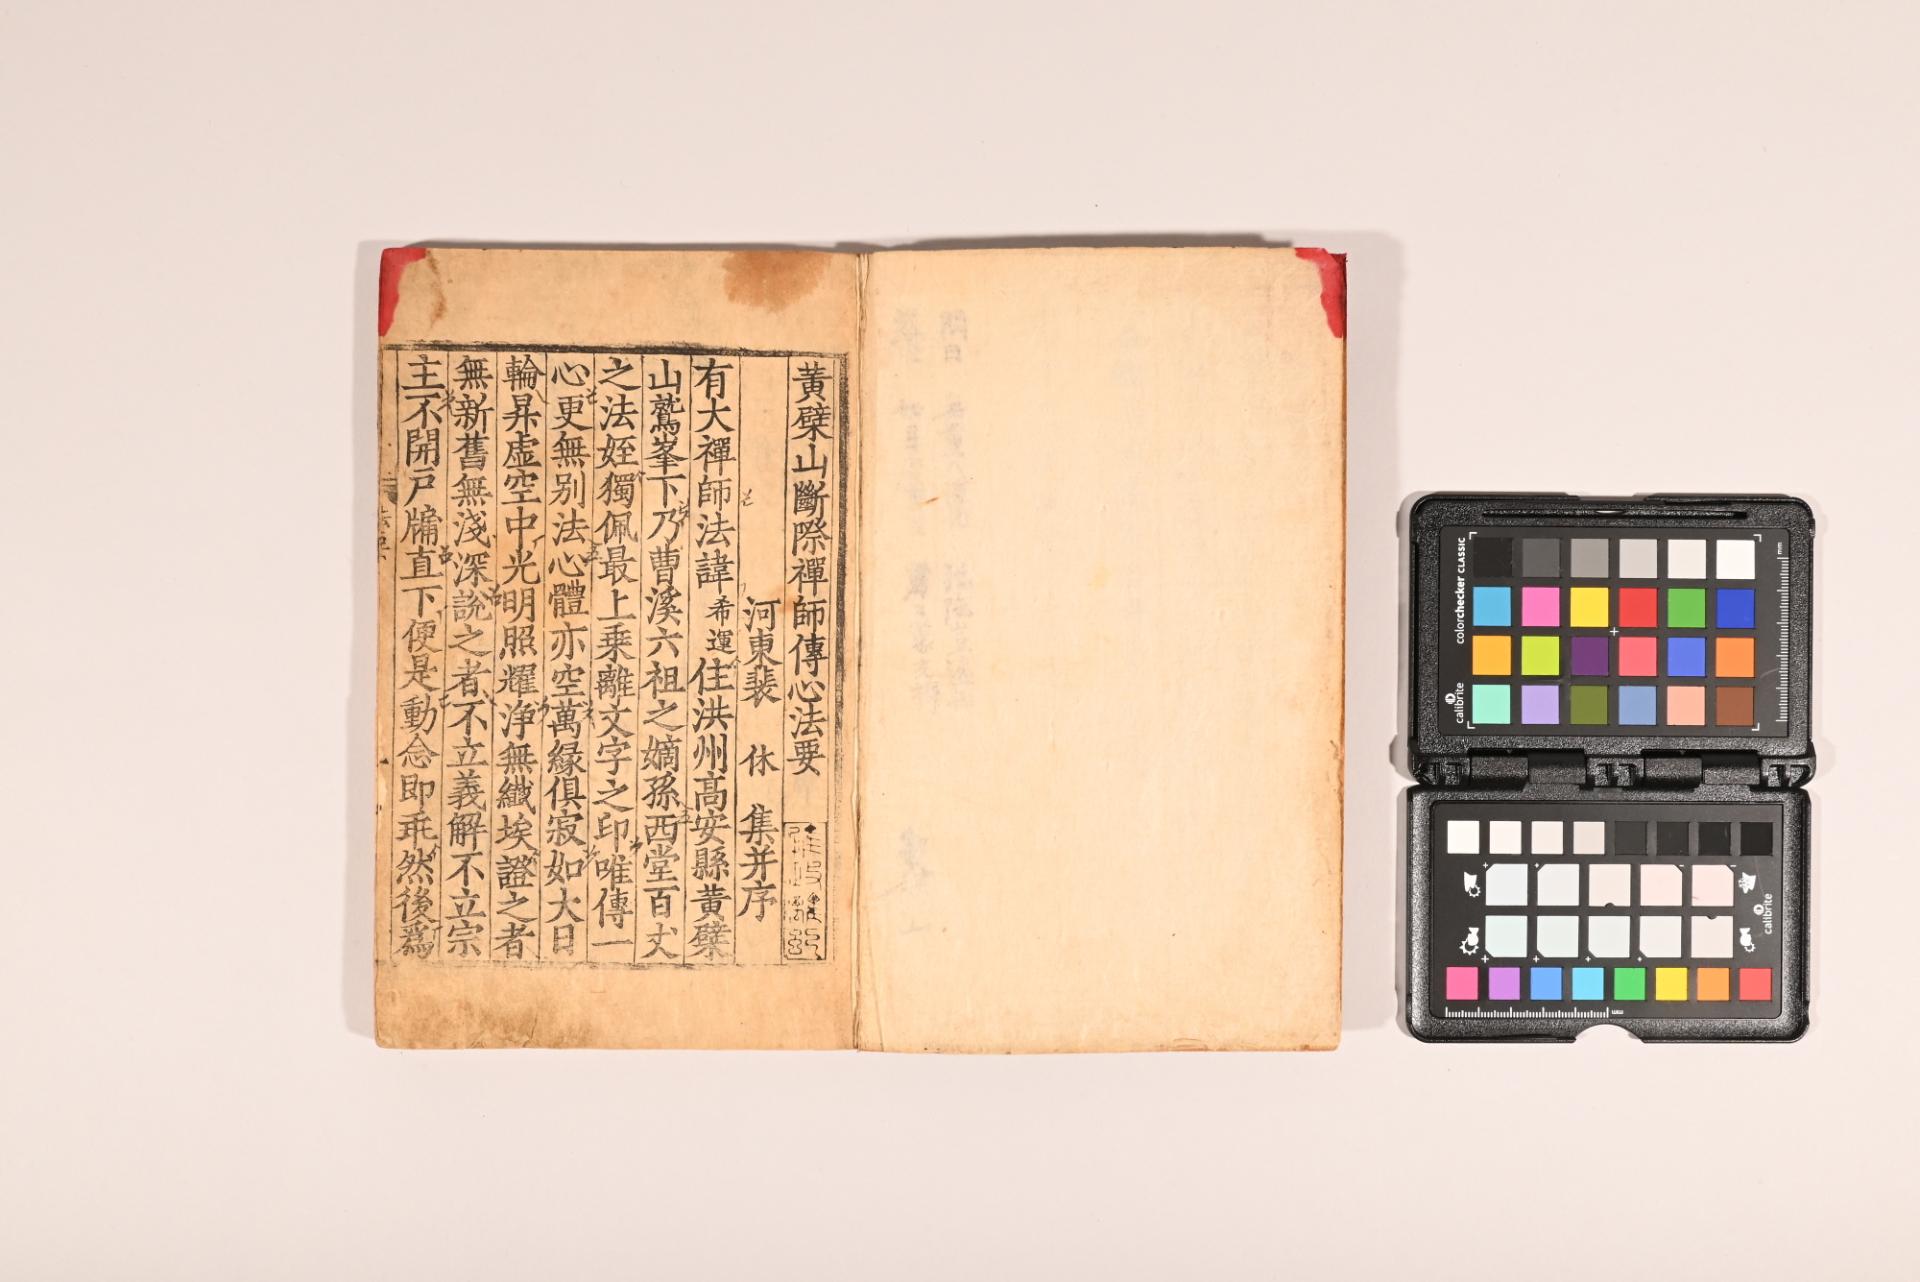 黃檗山斷際禪師傳心法要
河東裴 休 集并序
有大禪師法諱希運住洪州高安縣黃檗
山鷲峯下乃曹溪六祖之嫡孫西堂百丈
之法姪獨佩最上乗離文字之印唯傳一
心更無別法心體亦空萬縁俱寂如大日
輪昇虛空中光明照耀淨無纖埃證之者
無新舊無淺深說之者不立義解不立宗
主不開戶牖直下便是動念即乖然後爲
colorchecker CLASSIC
calibrite
mm
calibrite
mm